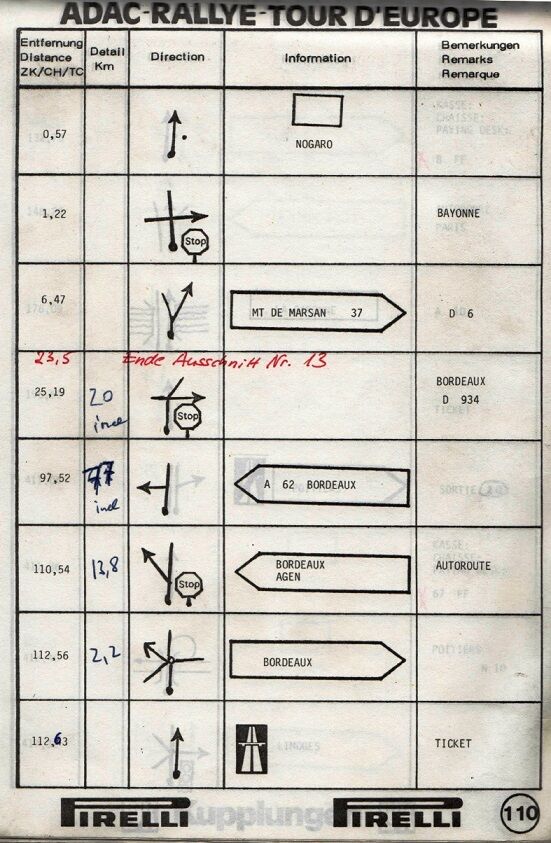 ADAC-RALLYE-TOUR D'EUROPE
Entfernung Detail Direction Information Bemerkungen
Distance Km Remarks
ZK/CH/TC Remarque
0,57 NOGARO
1,22 Stop BAYONNE
6,47 MT DE MARSAN 37 D 6
23,5 Ende Ausschnitt Nr. 13
25,19 20 incl Stop BORDEAUX
D 934
97,52 incl A 62 BORDEAUX
110,54 13,8 Stop BORDEAUX
AGEN AUTOROUTE
112,56 2,2 BORDEAUX
112,63 TICKET
PIRELLI PIRELLI 110